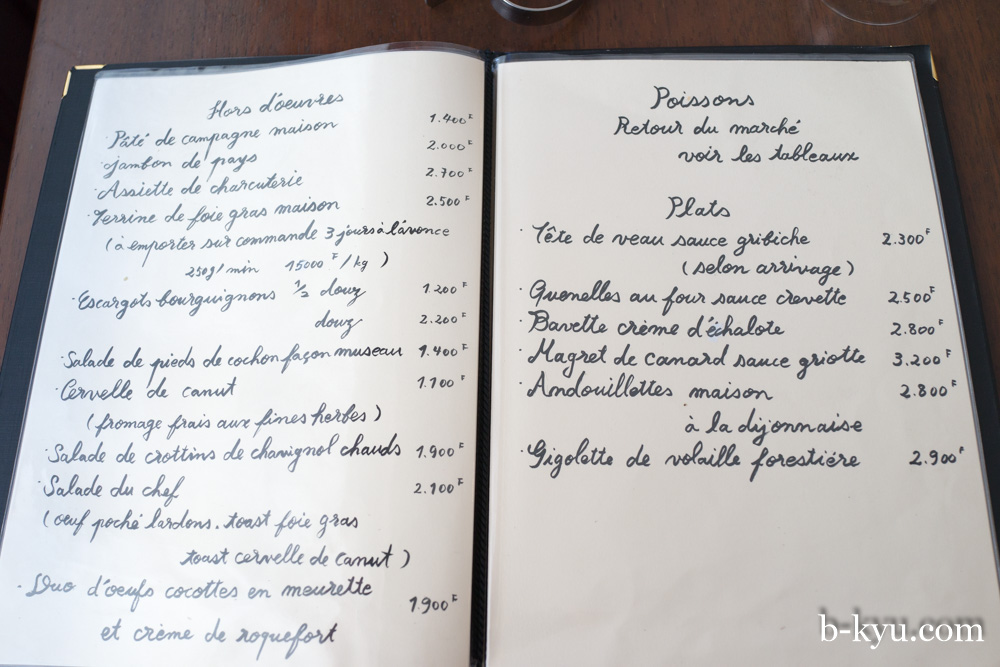 Hors d'oeuvres
· Pâté de campagne maison 1.400F
· Jambon de pays 2.000F
· Assiette de charcuterie 2.700F
· Terrine de foie gras maison 2.500F
(à emporter sur commande 3 jours à l'avance
250g/min 15000F/kg)
· Escargots bourguignons 1/2 douz 1.200F
douz 2.200F
· Salade de pieds de cochon façon museau 1.400F
· Cervelle de canut 1.100F
(fromage frais aux fines herbes)
· Salade de crottins de chavignol chauds 1.900F
· Salade du chef 2.100F
(oeuf poché lardons. toast foie gras
toast cervelle de canut)
· Duo d'oeufs cocottes en meurette
et crème de roquefort 1.900F
Poissons
Retour du marché
voir les tableaux
Plats
· Tête de veau sauce gribiche 2.300F
(selon arrivage)
· Quenelles au four sauce crevette 2.500F
· Bavette crème d'échalote 2.800F
· Magret de canard sauce griotte 3.200F
· Andouillettes maison 2.800F
à la dijonnaise
· Gigolette de volaille forestière 2.900F
b-kyu.com